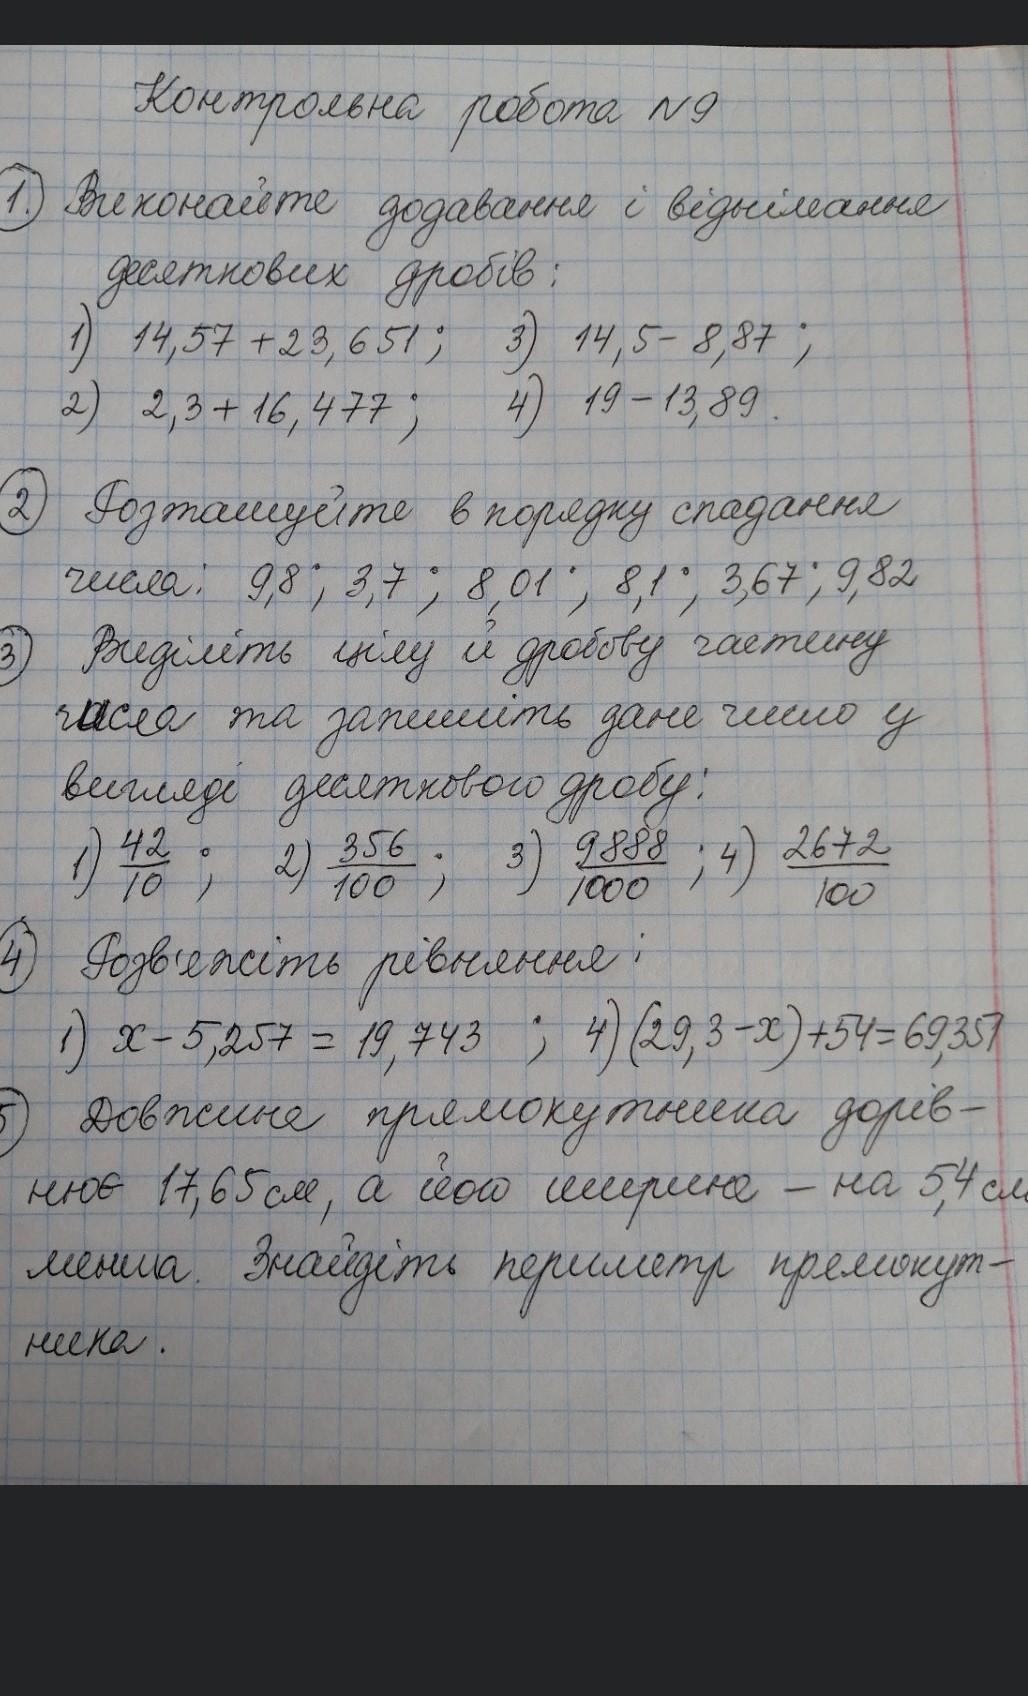 Контрольна робота №9
1. Виконайте додавання і віднімання
десяткових дробів:
1) 14,57 + 23,651; 3) 14,5 - 8,87;
2) 2,3 + 16,477; 4) 19 - 13,89.
2 Розташуйте в порядку спадання
числа: 9,8; 3,7; 8,01; 8,1; 3,67; 9,82
3) Виділіть цілу й дробову частину
числа та запишіть дане число у
вигляді десяткового дробу:
1) 42/10; 2) 356/100; 3) 9888/1000; 4) 2672/100
4) Розв'яжіть рівняння:
1) x - 5,257 = 19,743; 4) (29,3 - x) + 54 = 69,351
5) Довжина прямокутника дорів-
нює 17,65 см, а його ширина - на 5,4 см
менша. Знайдіть периметр прямокут-
ника.